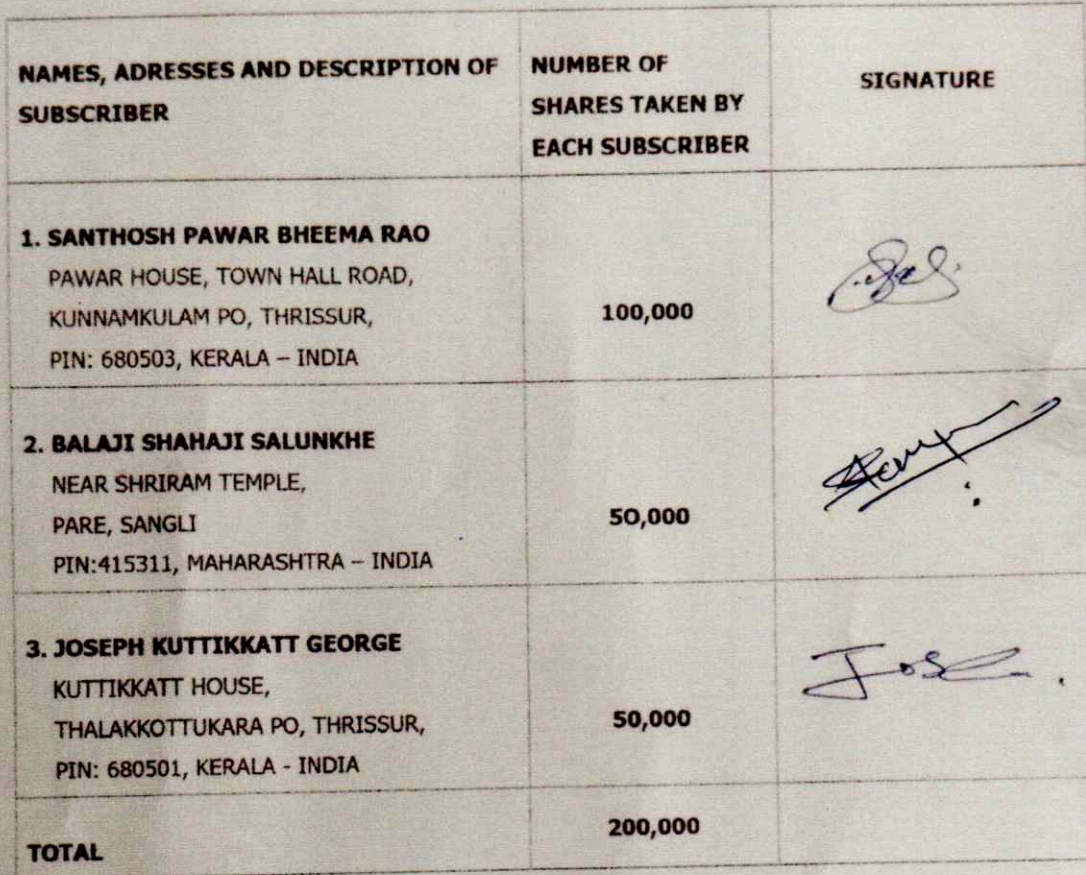 NAMES, ADRESSES AND DESCRIPTION OF
SUBSCRIBER
NUMBER OF
SHARES TAKEN BY
EACH SUBSCRIBER
SIGNATURE
1. SANTHOSH PAWAR BHEEMA RAO
PAWAR HOUSE, TOWN HALL ROAD,
KUNNAMKULAM PO, THRISSUR,
PIN: 680503, KERALA – INDIA
100,000
2. BALAJI SHAHAJI SALUNKHE
NEAR SHRIRAM TEMPLE,
PARE, SANGLI
PIN:415311, MAHARASHTRA – INDIA
5O,000
3. JOSEPH KUTTIKKATT GEORGE
KUTTIKKATT HOUSE,
THALAKKOTTUKARA PO, THRISSUR,
PIN: 680501, KERALA - INDIA
50,000
TOTAL
200,000